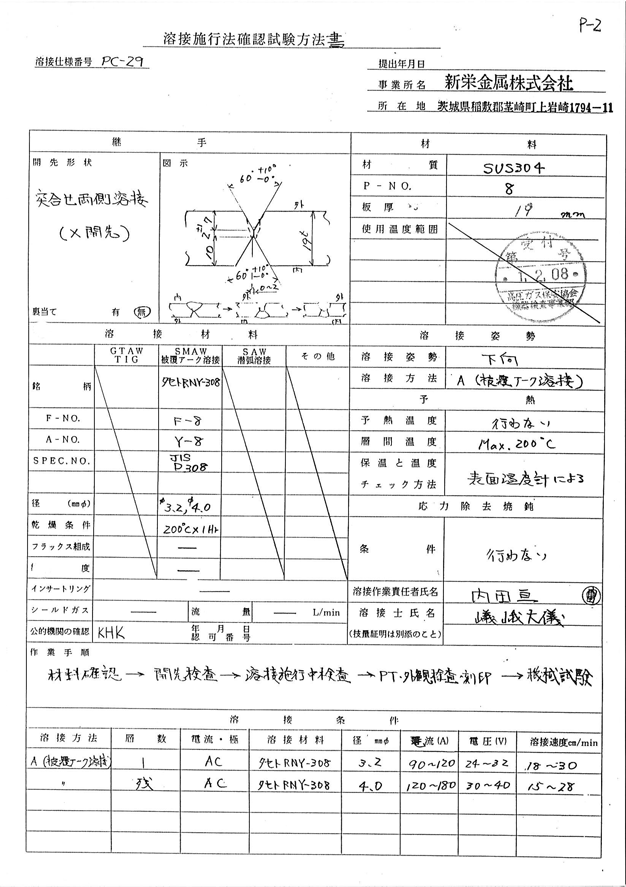 P-2
溶接施行法確認試験方法書
溶接仕様番号 PC-29
提出年月日
事業所名 新栄金属株式会社
所在地 茨城県稲敷郡茎崎町上岩崎1794-11
継手
材料
開先形状
図示
材質 SUS304
突合せ両側溶接
(X開先)
P-NO. 8
板厚 19 mm
使用温度範囲
60° +10° -0°
外
2
10
19t
60° +10° -0°
内
0~2
受付
第 号
1.2.08
高圧ガス保安協会
裏当て 有 無
内
外
溶接材料
溶接姿勢
GTAW TIG
SMAW 被覆アーク溶接
SAW 潜弧溶接
その他
溶接姿勢 下向
銘柄 タセトRNY-308
溶接方法 A (被覆アーク溶接)
予熱
F-NO. F-8
予熱温度 行わない
A-NO. Y-8
層間温度 Max. 200°C
SPEC.NO. JIS D308
保温と温度
チェック方法 表面温度計による
径 (mmφ) φ3.2, φ4.0
応力除去焼鈍
乾燥条件 200°C×1Hr
フラックス組成 —
条件 行わない
f 度 —
インサートリング —
溶接作業責任者氏名 内田亘
シールドガス — 流量 — L/min
溶接士氏名
公的機関の確認 KHK 年月日 認可番号
(技量証明は別添のこと)
作業手順
材料確認→開先検査→溶接施行中検査→PT・外観検査・刻印→機械試験
溶接条件
溶接方法 層数 電流・極 溶接材料 径 mmφ 電流(A) 電圧(V) 溶接速度cm/min
A (被覆アーク溶接) 1 AC タセトRNY-308 3.2 90~120 24~32 18~30
〃 残 AC タセトRNY-308 4.0 120~180 30~40 15~28